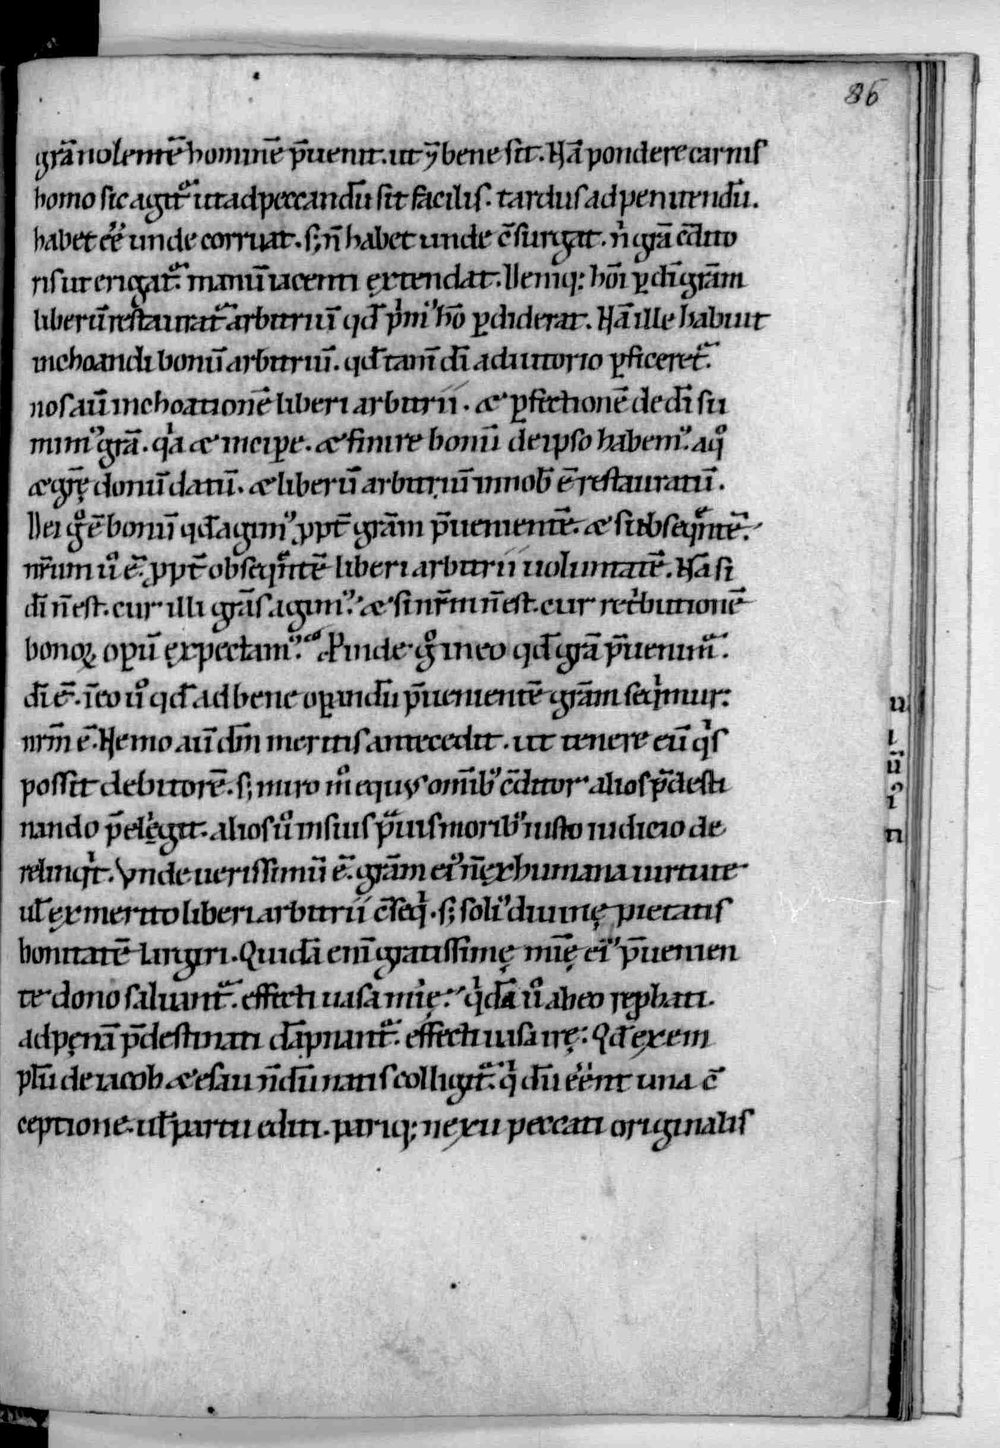 86
grā nolentē hominē p̄uenit. ut ⁊ bene sit. Nā pondere carnis
homo sic agit᷑ ut ad peccandū sit facilis. tardus ad penitendū.
habet ēē unde corruat. s; n̄ habet unde c̄surgat. nͥ grā c̄dito
ris ut erigat᷑ manū iacenti extendat. Deniq; hōi ꝑ dī grām
liberū restaurat᷑ arbitriū qd̄ pͥmꝰ hō ꝑdiderat. Nā ille habuit
inchoandi bonū arbitriū. qd̄ tam̄ dī adiutorio ꝑficeret᷑.
nos aū inchoationē liberi arbitrii. æ ꝑfectionē de dī su
mimꝰ grā. qͥa æ incipe. æ finire bonū de ipso habemꝰ. a qͦ
æ grę̄ donū datū. æ liberū arbitriū in nob̄ ē restauratū.
Dei gͦ ē bonū qd̄ agimꝰ ꝓpt̄ grām p̄uenientē. æ subseqͣntē.
nr̄um uͦ ē. ꝓpt̄ obseqͣntē liberi arbitrii uoluntatē. Nā si
dī n̄ est. cur illi grās agimꝰ. æ si nr̄m n̄ est. cur retͥbutionē
bonoꝝ oꝑū expectamꝰ. Proinde gͦ in eo qd̄ grā p̄uenimͬ.
dī ē. ī eo uͦ qd̄ ad bene oꝑandū p̄uenientē grām seqͥmur:
nrm̄ ē. Nemo aū dm̄ meritis antecedit. ut tenere eū qͥs
possit debitorē. s; miro mͦ equus om̄ibꝰ c̄ditor alios p̄desti
nando p̄elegit. alios uͦ in suis pͣuis moribꝰ iusto iudicio de
relinqͥt. Vnde uerissimū ē. grām eiꝰ n̄ ex humana uirtute
ul̄ ex merito liberi arbitrii c̄seqͥ. s; soliꝰ diuinę pietatis
bonitatē largiri. Quidā enī gratissimę mīę eiꝰ p̄uenien
te dono saluant᷑. effecti uasa mīę. qͥdā uͦ ab eo rep̄bati.
ad penā p̄destinati dāpnant᷑. effecti uasa irę: Qd̄ exem
plū de iacob æ esau n̄dū natis colligit᷑. qͥ dū eēnt una c̄
ceptione. ul̄ partu editi. pariq; nexu peccati originalis